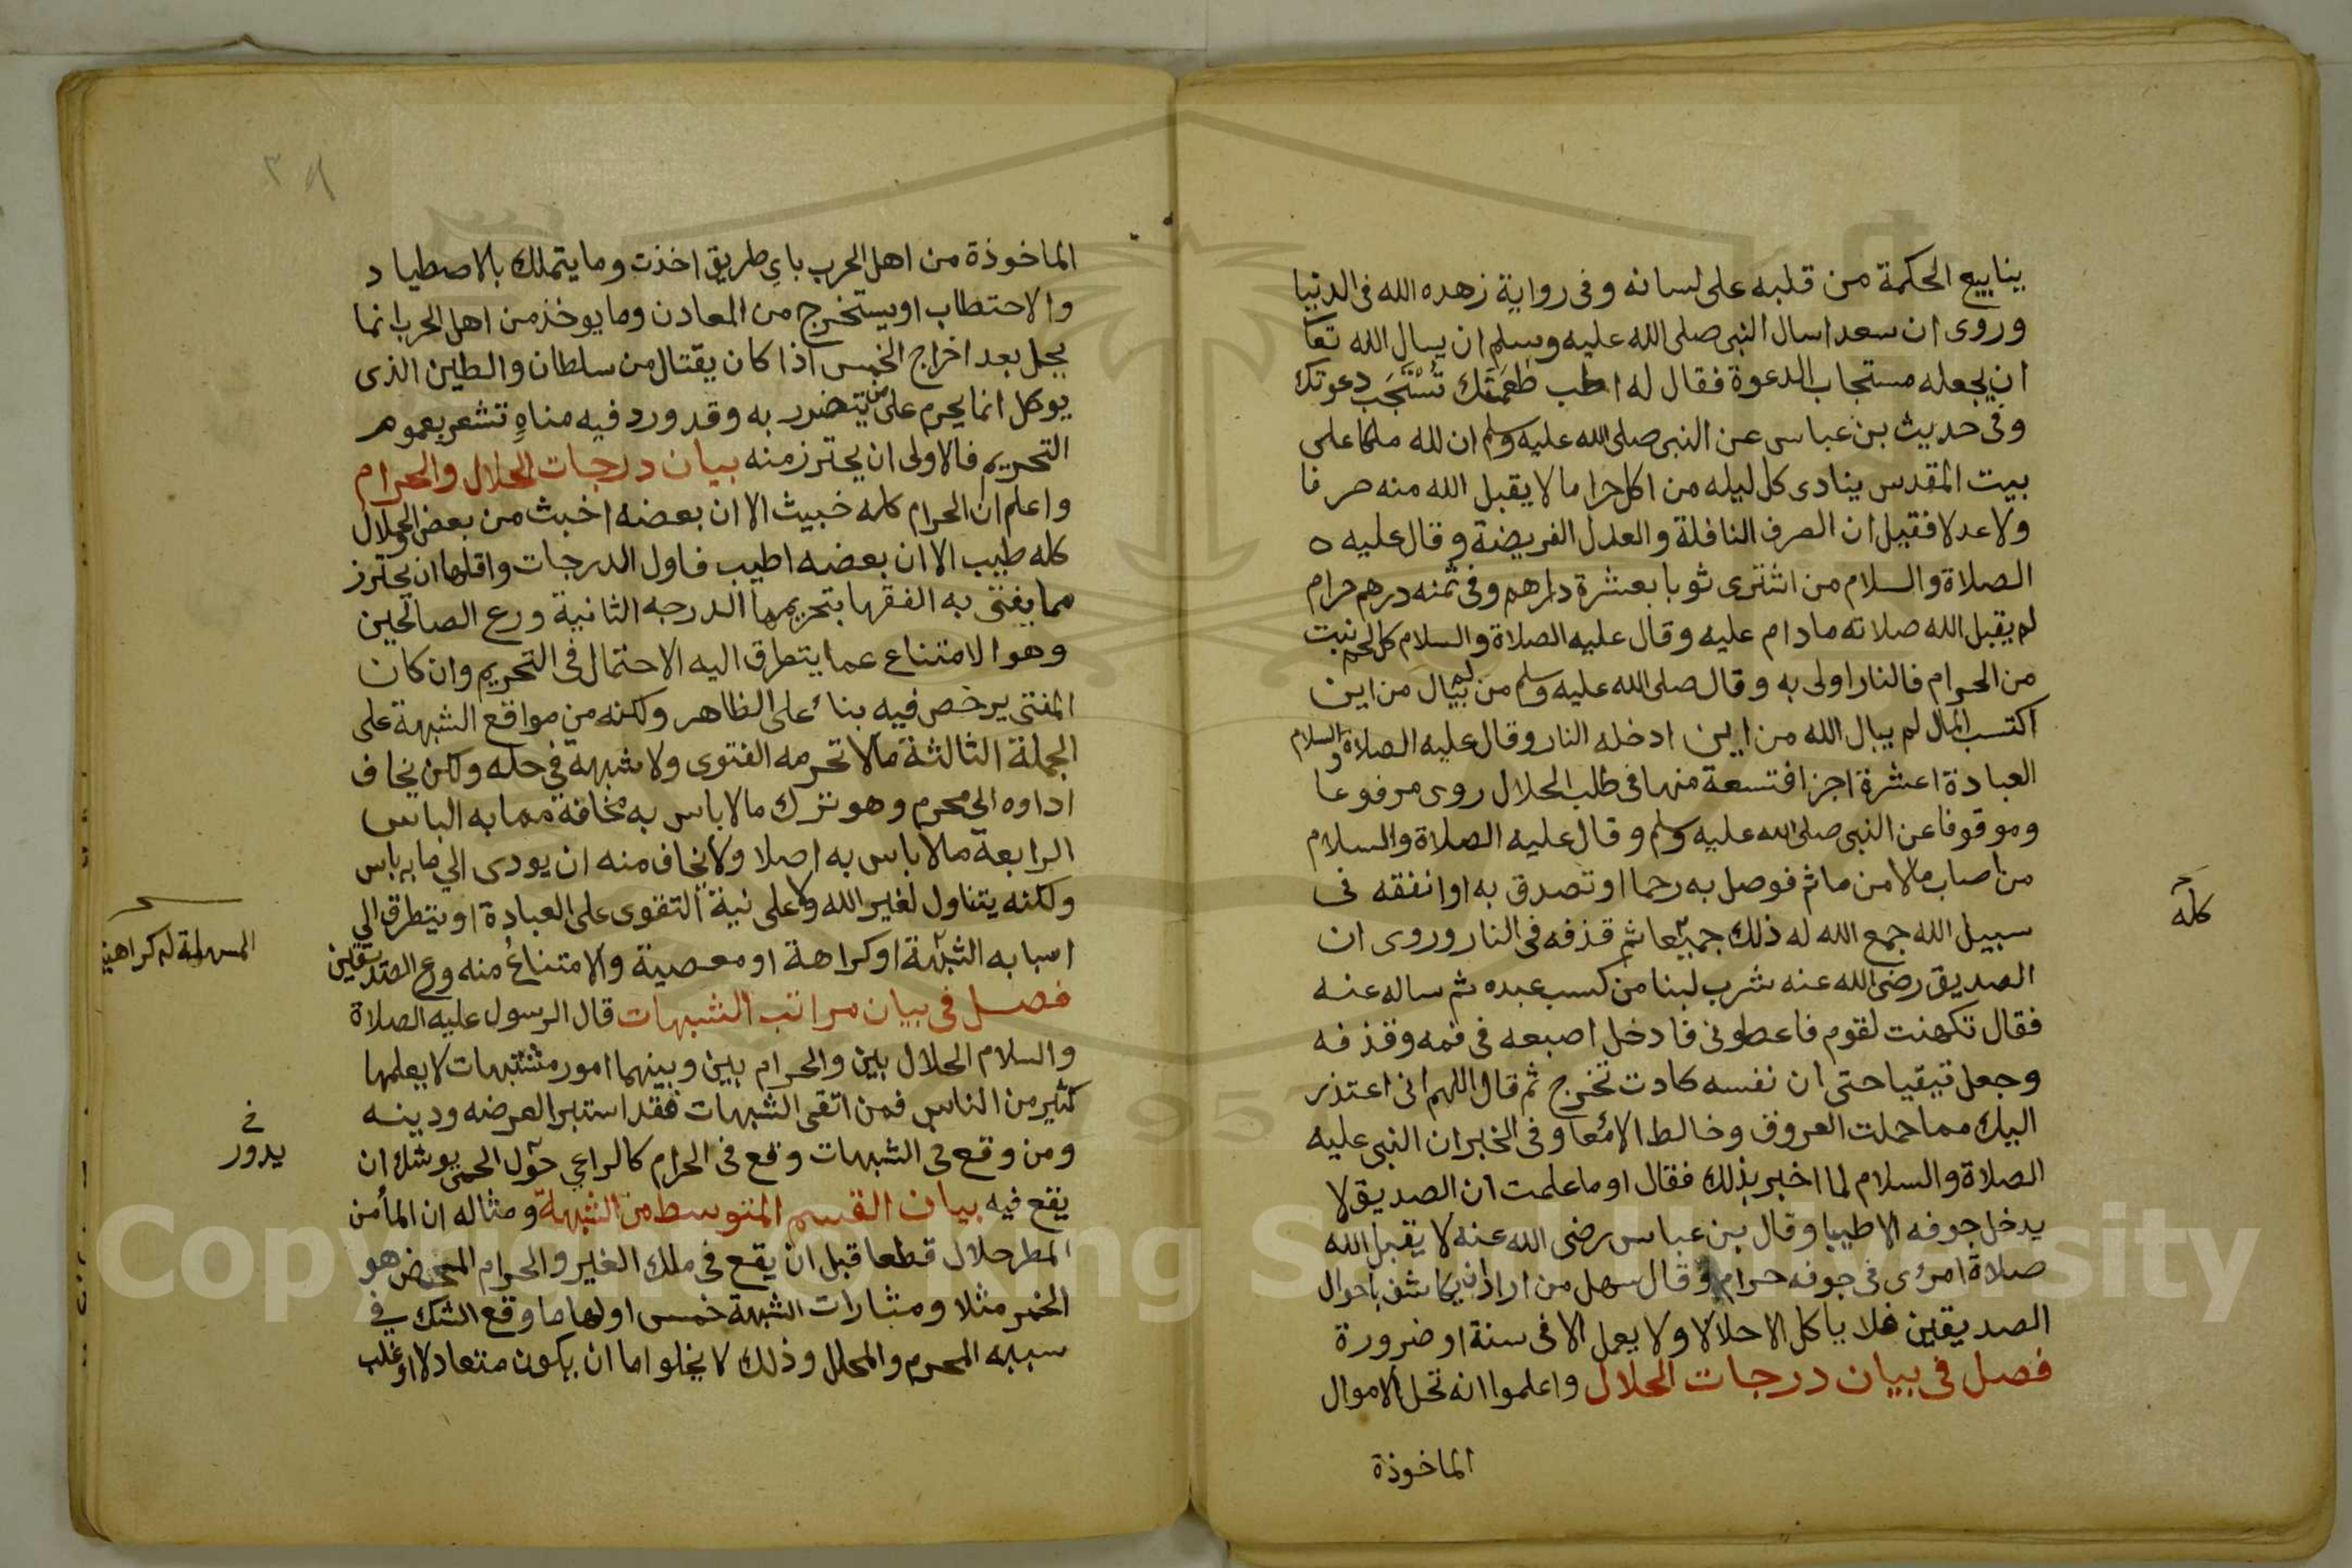 ينابيع الحكمة من قلبه على لسانه وفى رواية زهده الله فى الدنيا
وروى ان سعدا سال النبى صلى الله عليه وسلم ان يسال الله تعا
ان يجعله مستجاب الدعوة فقال له اطب طعمتك تستجب دعوتك
وفى حديث بن عباس عن النبى صلى الله عليه وسلم ان لله ملكا على
بيت المقدس ينادى كل ليله من اكل حراما لا يقبل الله منه صرفا
ولا عدلا فقيل ان الصرف النافلة والعدل الفريضة وقال عليه ه
الصلاة والسلام من اشترى ثوبا بعشرة دراهم وفى ثمنه درهم حرام
لم يقبل الله صلاته مادام عليه وقال عليه الصلاة والسلام كل لحم نبت
من الحرام فالنار اولى به وقال صلى الله عليه وسلم من لم يبال من اين
اكتسب المال لم يبال الله من اين ادخله النار وقال عليه الصلاة والسلام
العبادة اعشرة اجزا فتسعة منها فى طلب الحلال روى مرفوعا
وموقوفا عن النبى صلى الله عليه وسلم وقال عليه الصلاة والسلام
من اصاب مالا من ماثم فوصل به رحما او تصدق به او انفقه فى
سبيل الله جمع الله له ذلك جميعا ثم قذفه فى النار وروى ان
كله
الصديق رضى الله عنه شرب لبنا من كسب عبده ثم ساله عنه
فقال تكهنت لقوم فاعطونى فادخل اصبعه فى فمه وقذفه
وجعل تيقيا حتى ان نفسه كادت تخرج ثم قال اللهم انى اعتذر
اليك مما حملت العروق وخالط الامعا وفى الخبر ان النبى عليه
الصلاة والسلام لما اخبر بذلك فقال او ما علمت ان الصديق لا
يدخل جوفه الا طيبا وقال بن عباس رضى الله عنه لا يقبل الله
صلاة امرى فى جوفه حرام وقال سهل من اراد ان يكاشف باحوال
الصديقين فلا ياكل الا حلالا ولا يعمل الا فى سنة او ضرورة
فصل فى بيان درجات الحلال واعلموا انه تحل الاموال
الماخوذة
الماخوذة من اهل الحرب باي طريق اخذت وما يتملك بالاصطياد
والاحتطاب او يستخرج من المعادن وما يوخذ من اهل الحرب انما
يحل بعد اخراج الخمس اذا كان يقتال من سلطان والطين الذى
يوكل انما يحرم على من يتضرر به وقد ورد فيه مناهٍ تشعر بعموم
التحريم فالاولى ان يحترز منه بيان درجات الحلال والحرام
واعلم ان الحرام كله خبيث الا ان بعضه اخبث من بعض والحلال
كله طيب الا ان بعضه اطيب فاول الدرجات واقلها ان يحترز
مما يفتى به الفقها بتحريمها الدرجه الثانية ورع الصالحين
وهو الامتناع عما يتطرق اليه الاحتمال فى التحريم وان كان
المفتى يرخص فيه بناءً على الظاهر ولكنه من مواقع الشبهة على
الجملة الثالثة مالا تحرمه الفتوى ولا شبهة في حله ولكن يخاف
اداوه الي محرم وهو ترك مالا باس به مخافة مما به الباس
الرابعة مالا باس به اصلا ولا يخاف منه ان يودى الي ما به باس
ولكنه يتناول لغير الله ولا على نية التقوى على العبادة او يتطرق الي
اسبابه الشبهة او كراهة او معصية والامتناع منه ورع الصديقين
المسهلة له كراهية
فصل فى بيان مراتب الشبهات قال الرسول عليه الصلاة
والسلام الحلال بين والحرام بين وبينهما امور مشتبهات لا يعلمها
كثير من الناس فمن اتقى الشبهات فقد استبرا لعرضه ودينه
ومن وقع فى الشبهات وقع فى الحرام كالراعي حول الحمى يوشك ان
في
يدور
يقع فيه بيان القسم المتوسط من الشبهة ومثاله ان الما من
المطر حلال قطعا قبل ان يقع فى ملك الغير والحرام المحض هو
الخمر مثلا ومثارات الشبهة خمس اولها ما وقع الشك في
سببه المحرم والمحلل وذلك لا يخلوا ما ان يكون متعادلا او غلب
Copyright © King Saud University